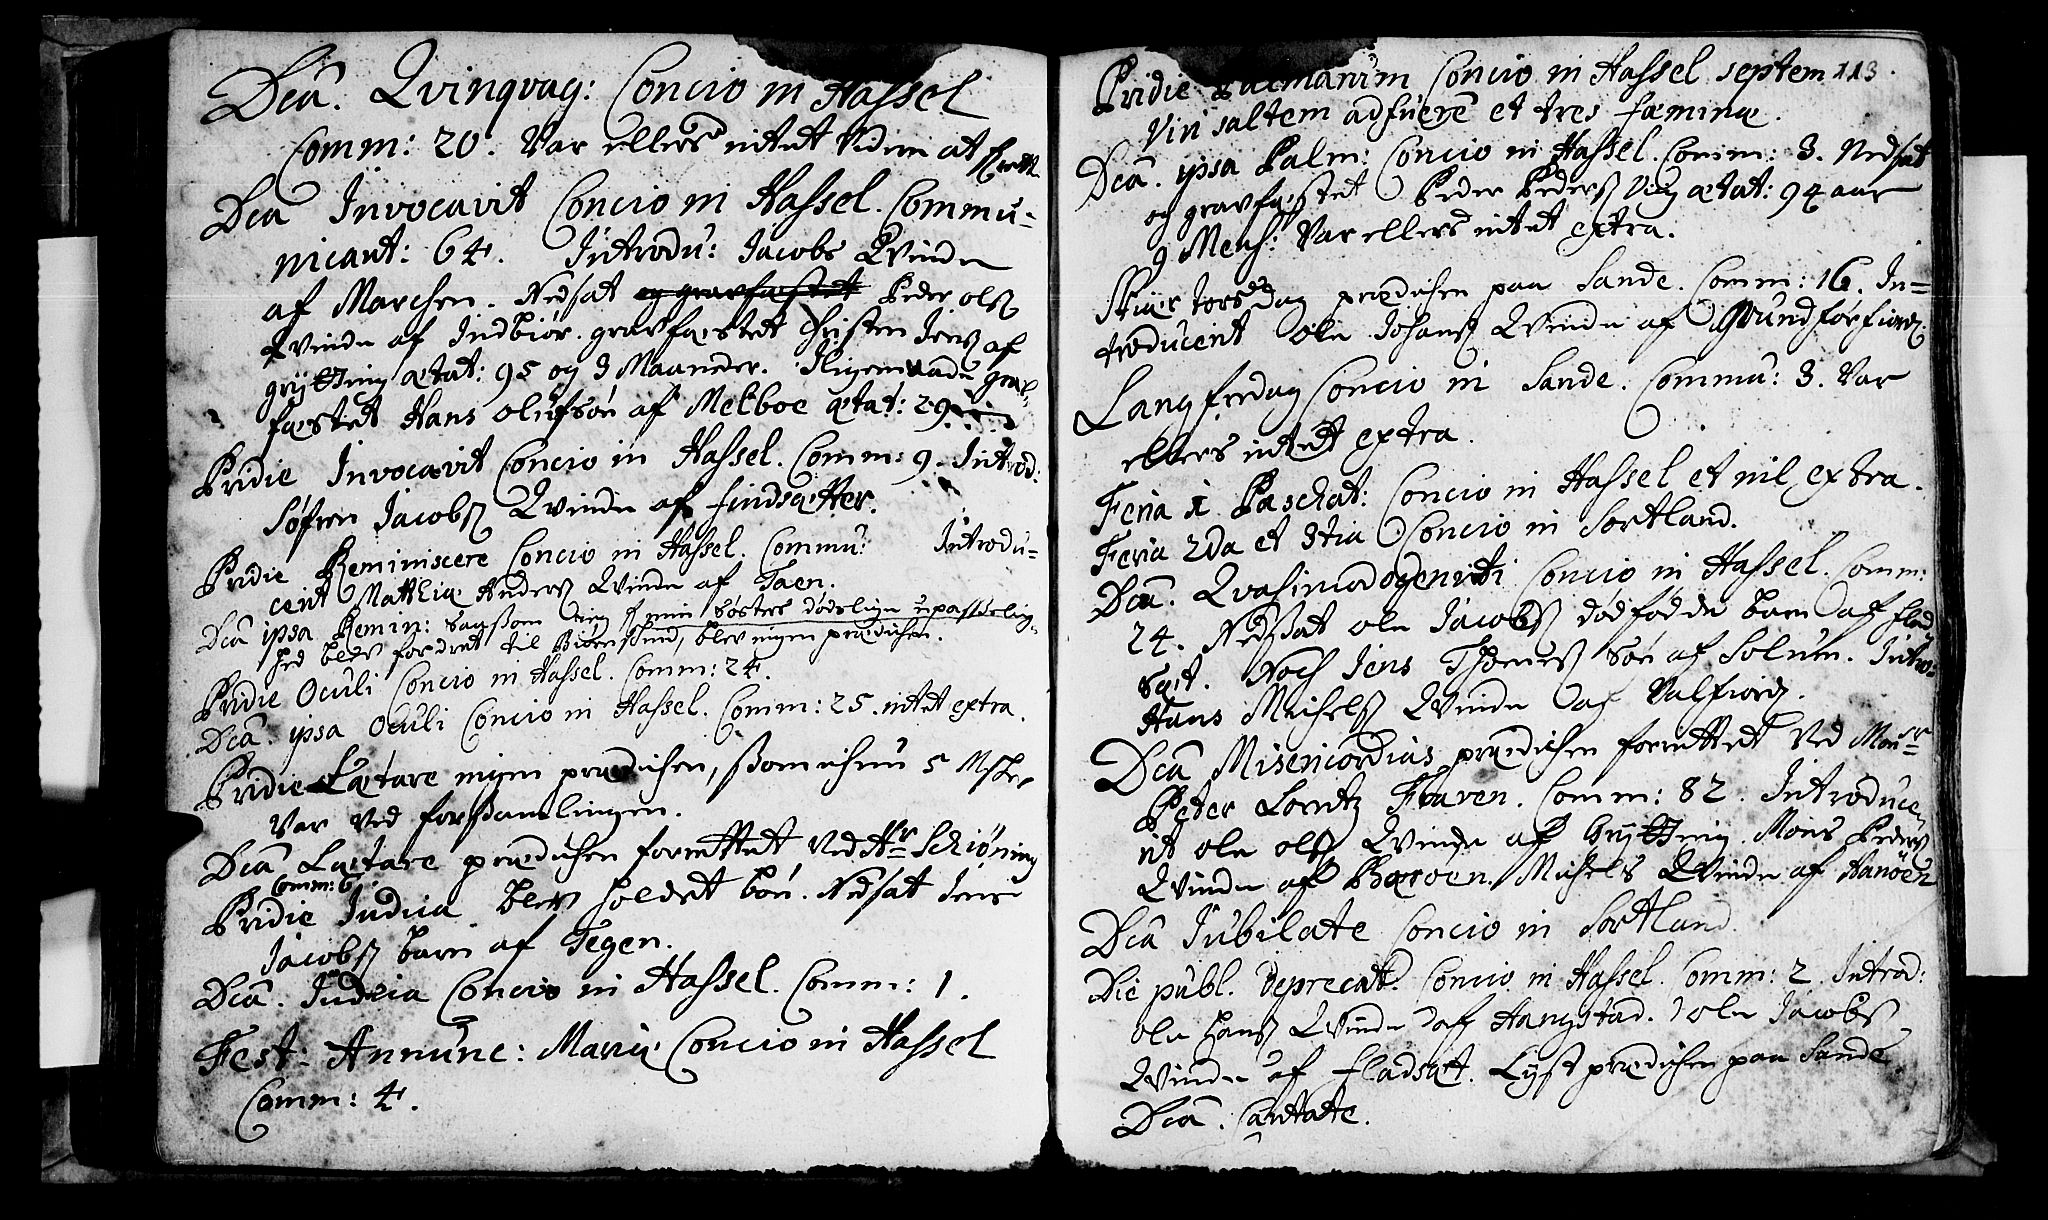 Dcâ. Qvinqvag: Concio in Hassel
Comm: 20. Var ellers intet videre at
Dca Invocavit Concio in Hassel. Commu-
nicant: 64. Introdu: Jacobs Qvinde
af Marchen. Nedsat og gravfæstet Peder Ols
Qvinde af Indbiör. gravfæstet Christen Jens af
Grÿtting ætat: 95 og 3 Maaneder. Iligemaade grav-
fæstet Hans Olufsøn af Melboe ætat: 29
Pridie Invocavit Concio in Hassel. Comm: 9. Introd:
Søfren Jacobs Qvinde af Findsætter.
Pridie Reminiscere Concio in Hassel. Commu: Introdu-
cent Mathia Anders Qvinde af Taen.
Dcâ ipsa Remin: saasom ieg min søsters dødelige upasselig-
hed blev fordret til Biørnsund, blev ingen prædichen.
Pridie Oculi Concio in Hassel. Comm: 24.
Dcâ. ipsa Oculi Concio in Hassel. Comm: 25. intet extra.
Pridie Lætare ingen prædichen, ssom ichun 5 Msker
var ved forssamlingen.
Dcâ Lætare prædichen forrettet ved Hr Schiøning
Comm: 6
Pridie Judica blev holdet bön. Nedsat Jens
Jacobs barn af Tegen.
Dcâ. Judica Concio in Hassel. Comm: 1.
Fest: Annunc: Mariæ Concio in Hassel
Comm: 4.
113.
Pridie Palmarum Concio in Hassel. septem
viri saltem adfuere et tres fæminæ.
Dcâ. ipsa Palm: Concio in Hassel. Comm: 3. Nedsat
og gravfæstet Peder Peders Vig ætat: 94 aar
9 Mens: Var ellers intet extra.
Skiær torsdag prædichen paa Sande. Comm: 16. In-
troducent Ole Johans Qvinde af Grundförfiord.
Langfredag Concio in Sande. Commu: 3. Var
ellers intet extra.
Feria 1 Paschat: Concio in Hassel et nil extra.
Feria 2da et 3tia Concio in Sortland.
Dcâ. Qvasimodogeniti Concio in Hassel. Comm:
24. Nedssat Ole Jacobs dødfødde barn af Flad
sæt. Noch Jens Thomes Søn af Solum. Intro-
Hans Michels Qvinde af Valfiord.
Dcâ Misericordias prædichen forrettet ved Monsr
Peter Lorentz Fraven. Comm: 82. Introduce
nt Ole Ols Qvinde af Grÿtting. Mons Peders
Qvinde af Barøen. Michels Qvinde af Hanöen
Dcâ Jubilate Concio in Sortland.
Die publ. deprecat. Concio in Hassel. Comm: 2. Introd:
Ole Hans Qvinde af Hangstad. Ole Jacobs
Qvinde af Fladsæt. Lyst prædichen paa Sande
Dcâ. Cantate.